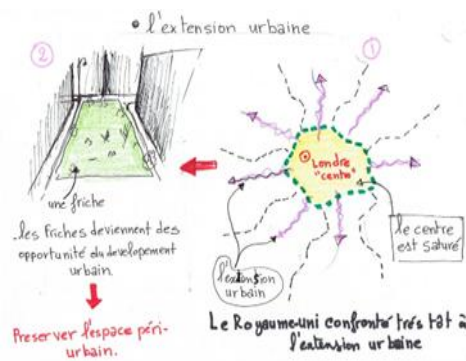 • l'extension urbaine
②
une friche
les friches deviennent des
opportunité du developement
urbain.
Preserver l'espace péri-
urbain.
①
Londre
"centre"
le centre
est saturé
l'extension
urbain
Le Royaume-uni confronté trés tât à
l'extension urbaine